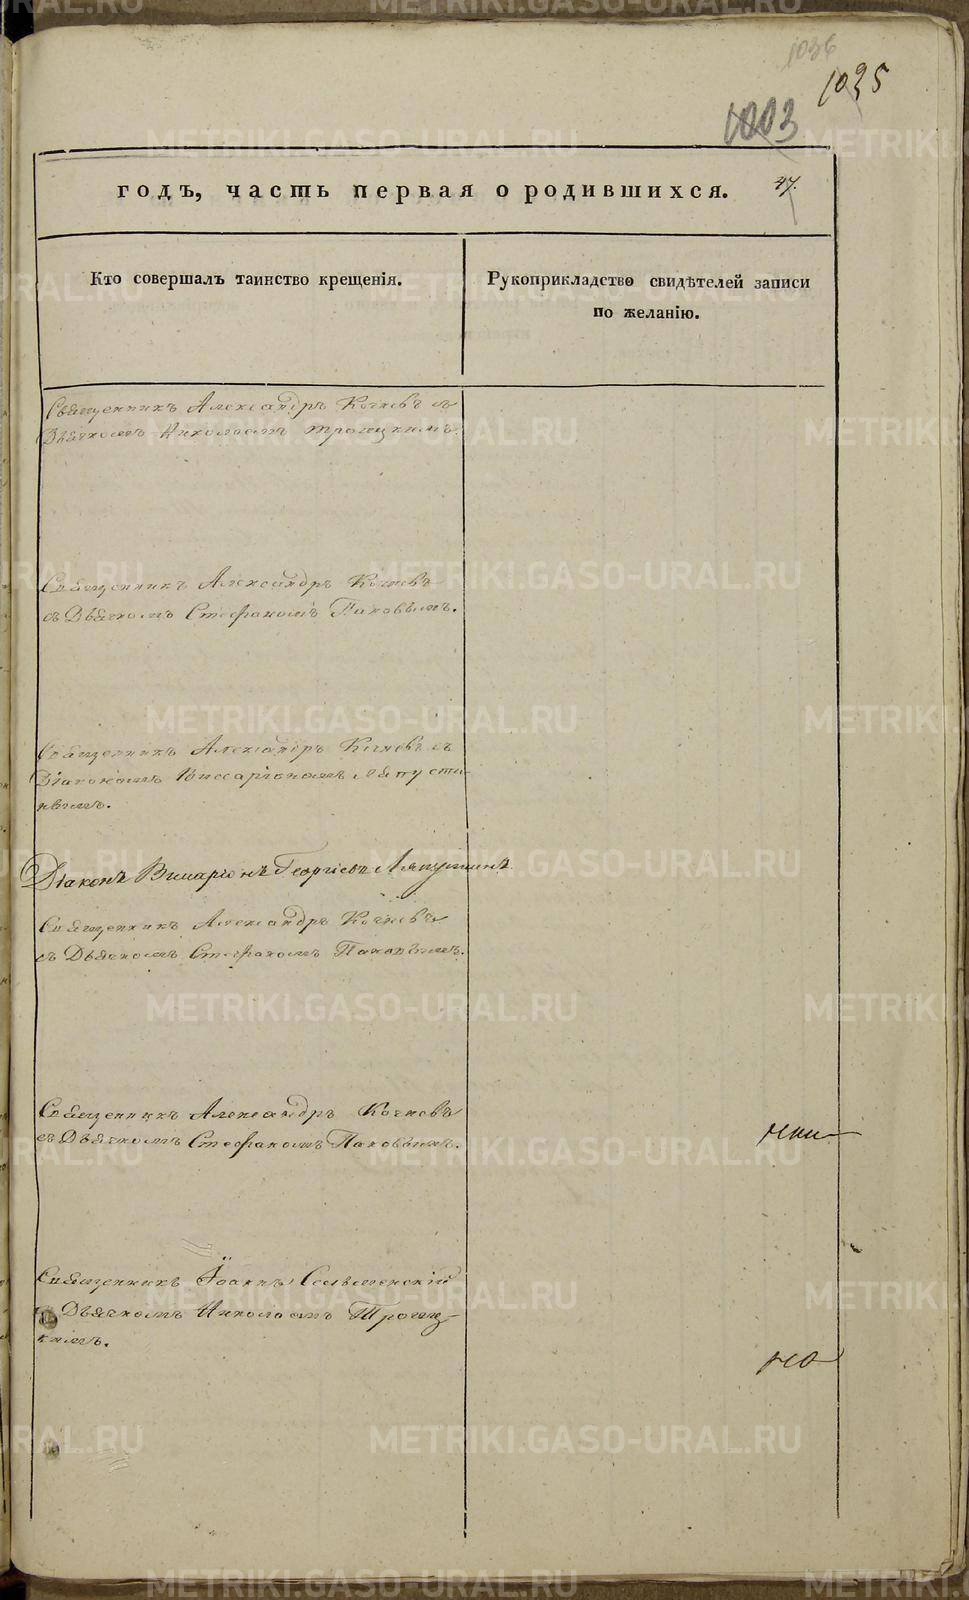 1036
1035
1003
годъ, часть первая о родившихся. 47.
Кто совершалъ таинство крещенія.
Рукоприкладство свидѣтелей записи
по желанію.
Священникъ Александръ Кочневъ съ
Дьячкомъ Николаемъ Троицкимъ.
Священникъ Александръ Кочневъ
съ Дьячкомъ Стефаномъ Пановымъ.
Священникъ Александръ Кочневъ съ
Діакономъ Виссаріономъ Ляпусти-
нымъ.
Діаконъ Георгіевъ Ляпустинъ
Священникъ Александръ Кочневъ
съ Дьячкомъ Стефаномъ Пановымъ.
Священникъ Александръ Кочневъ
съ Дьячкомъ Стефаномъ Пановымъ.
Священникъ Іоаннъ
Дьячкомъ Николаемъ Троиц-
кимъ.
METRIKI.GASO-URAL.RU